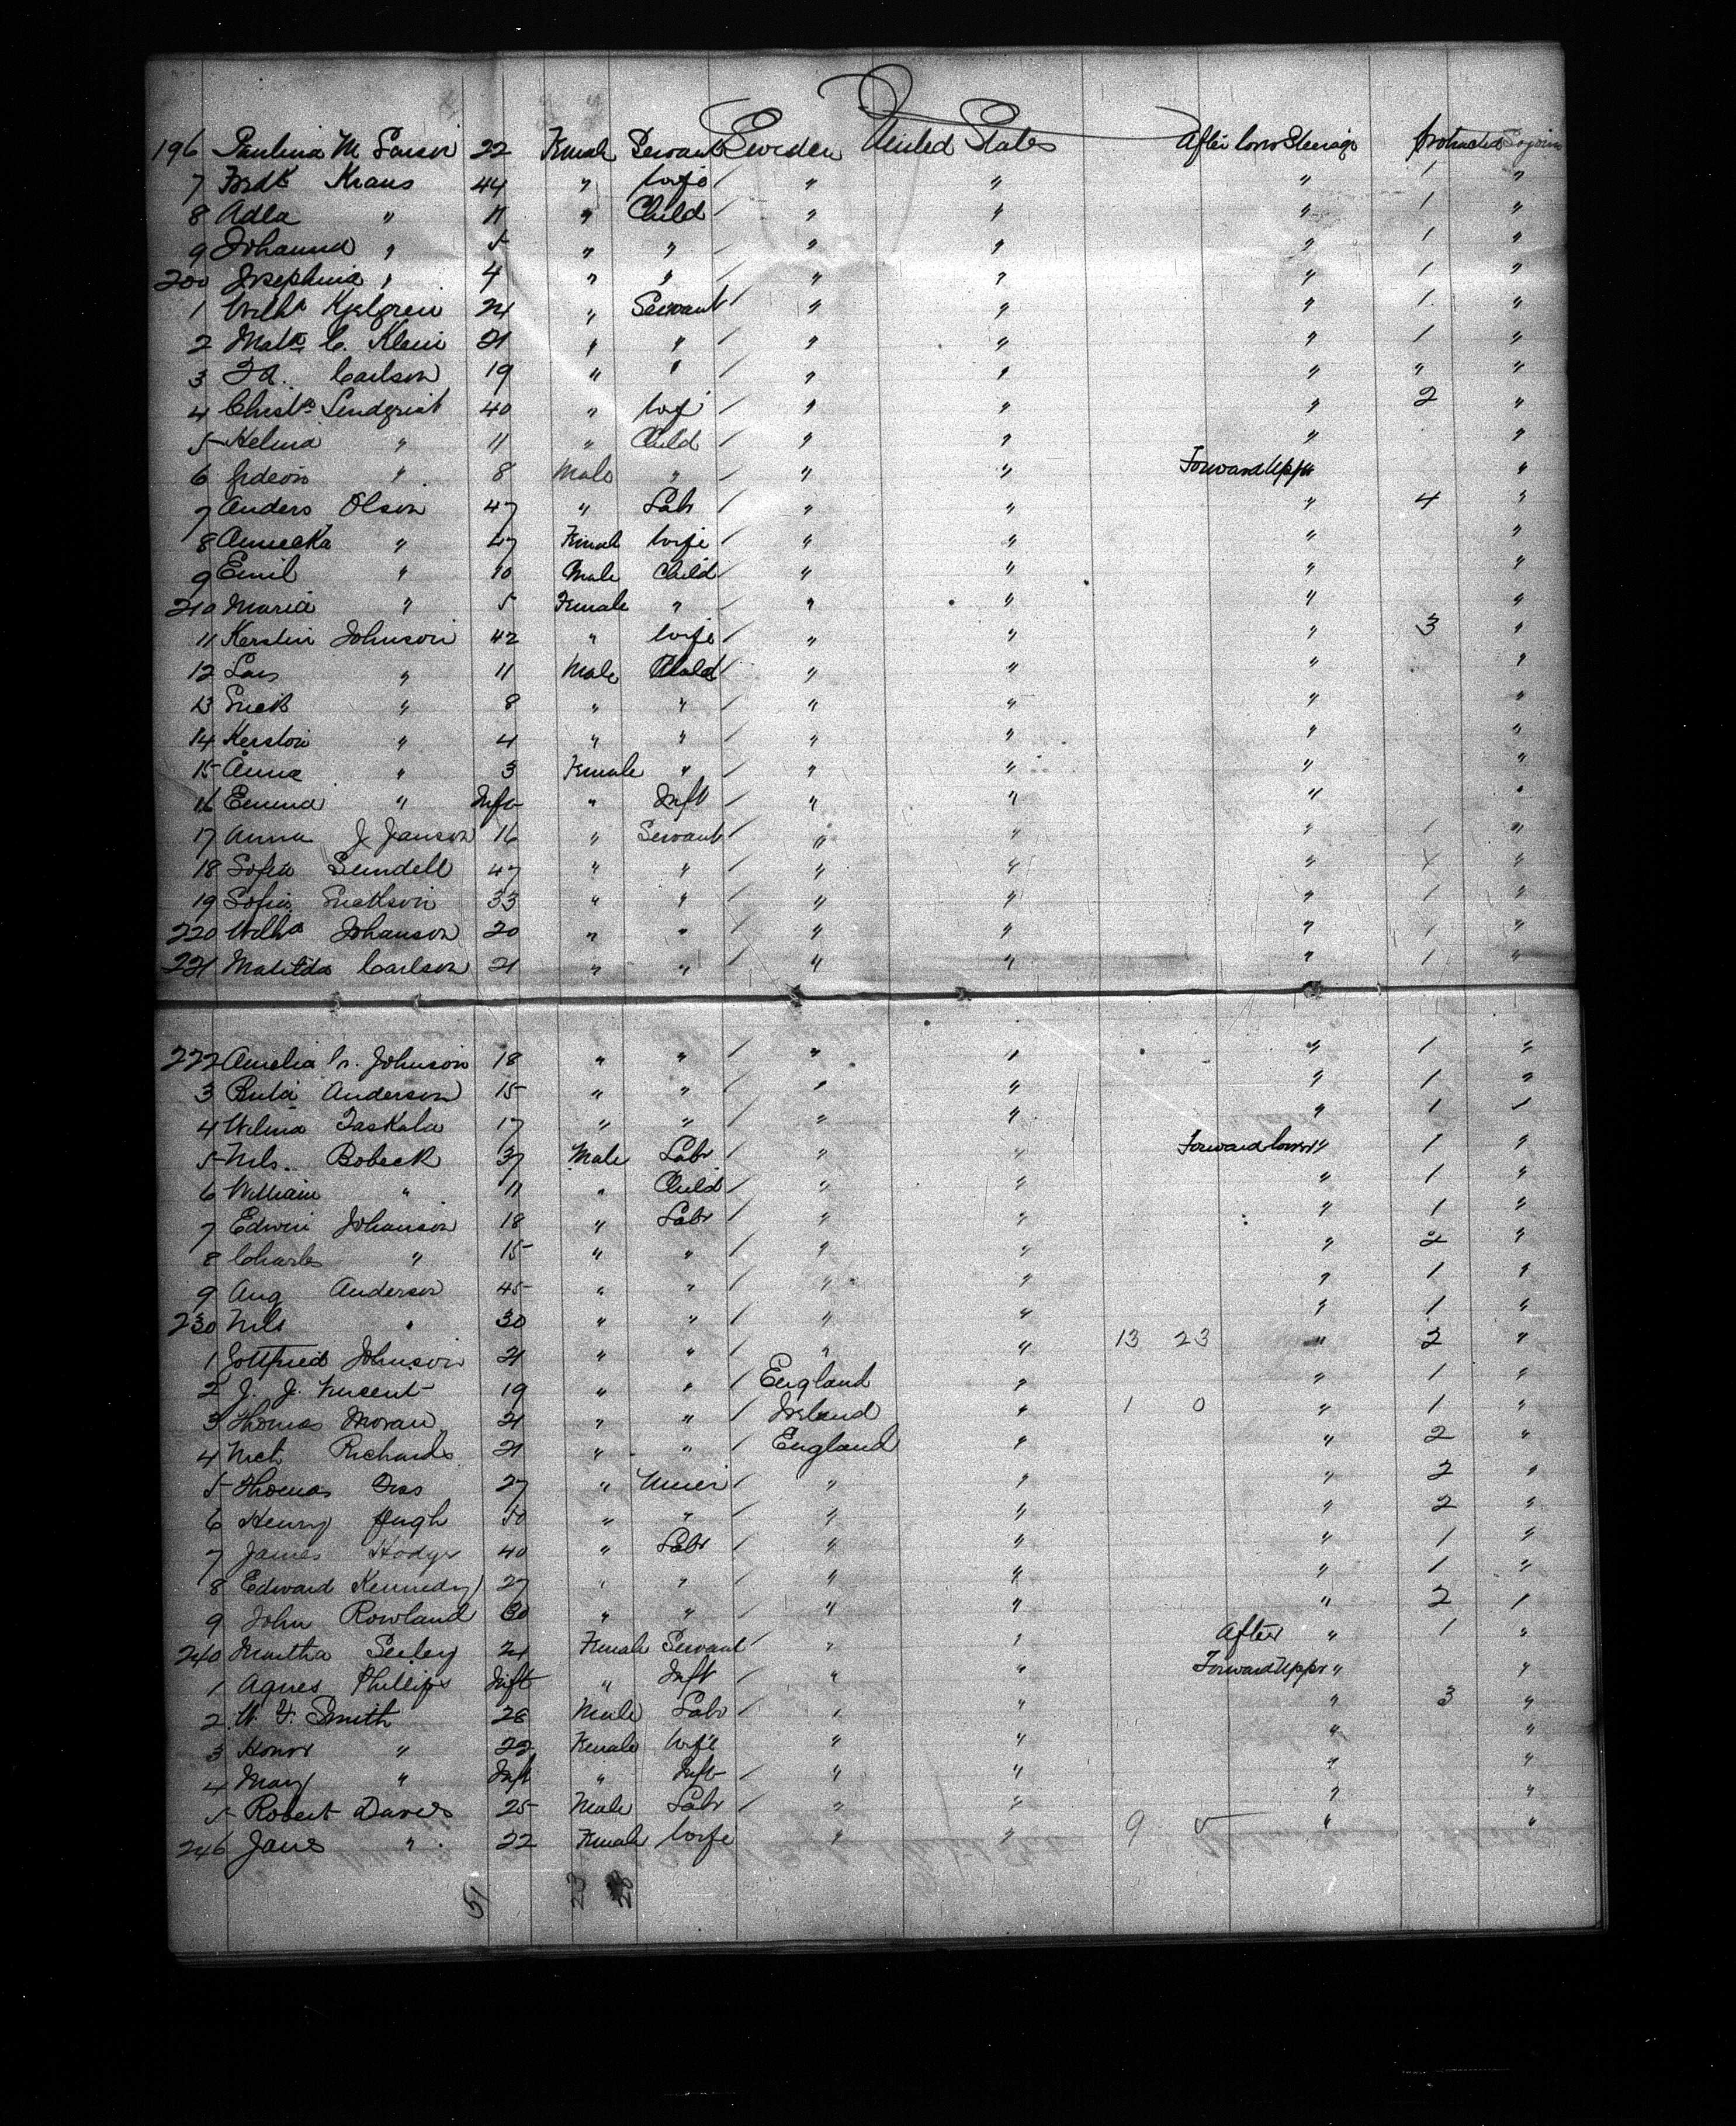 196 Paulina M Larson 22 Female Servant Sweden United States After lower Steerage Protracted Sojourn
7 Fredk Kraus 44 " wife / " " " 1 "
8 Adla " 11 " Child / " " " 1 "
9 Johanna " 5 " " / " " " 1 "
200 Josephina " 4 " " / " " " 1 "
1 Wilha Kjelgren 24 " Servant / " " " 1 "
2 Mata C. Klein 21 " " / " " " 1 "
3 Ida Carlson 19 " " / " " " " "
4 Christa Lindqvist 40 " wife / " " " 2 "
5 Helma " 11 " Child / " " " "
6 Gideon " 8 Male " / " " Forward Upper " "
7 Anders Olson 47 " Labr / " " " 4 "
8 Annecka " 47 Female wife / " " " "
9 Emil " 10 Male Child / " " " "
210 Maria " 5 Female " / " " " "
11 Kerstin Johnson 42 " wife / " " " 3 "
12 Lars " 11 Male Child / " " " "
13 Erick " 8 " " / " " " "
14 Kerstin " 4 " " / " " " "
15 Anna " 3 Female " / " " " "
16 Emma " Inft " Inft / " " " "
17 Anna J Janson 16 " Servant / " " " 1 "
18 Sofia Sundell 47 " " / " " " 1 "
19 Sofia Erickson 33 " " / " " " 1 "
220 Wilha Johanson 20 " " / " " " 1 "
221 Matilda Carlson 21 " " / " " " 1 "
222 Amelia Johnson 18 " " / " " " 1 "
3 Anderson 15 " " / " " " 1 "
4 Wilma Taskala 17 " " / " " " 1 "
5 Nils Bobeck 37 Male Labr / " " Forward lower " 1 "
6 William " 11 " Child / " " " 1 "
7 Edwin Johanson 18 " Labr / " " " 1 "
8 Charles " 15 " " / " " " 2 "
9 Aug Anderson 45 " " / " " " 1 "
230 Nils " 30 " " / " " " 1 "
1 Gottfried Johnson 21 " " / " " 13 23 " 2 "
2 J. J. Vincent 19 " " / England " " 1 "
3 Thomas Moran 21 " " / Ireland " 1 0 " 1 "
4 Nich Richards 21 " " / England " " 2 "
5 Thomas 27 " Miner / " " " 2 "
6 Henry Pugh 50 " " / " " " 2 "
7 James Hodge 40 " Labr / " " " 1 "
8 Edward Kennedy 27 " " / " " " 1 "
9 John Rowland 30 " " / " " " 2 "
240 Martha Seeley 21 Female Servant / " " After " 1 "
1 Agnes Phillips Inft " Inft / " " Forward Upper " "
2 W. F. Smith 28 Male Labr / " " " 3 "
3 Honor " 22 Female wife / " " " "
4 Mary " Inft " Inft / " " " "
5 Robert Davies 25 Male Labr / " " " "
246 Jane " 22 Female wife " " 9 5 " "
51 23 28